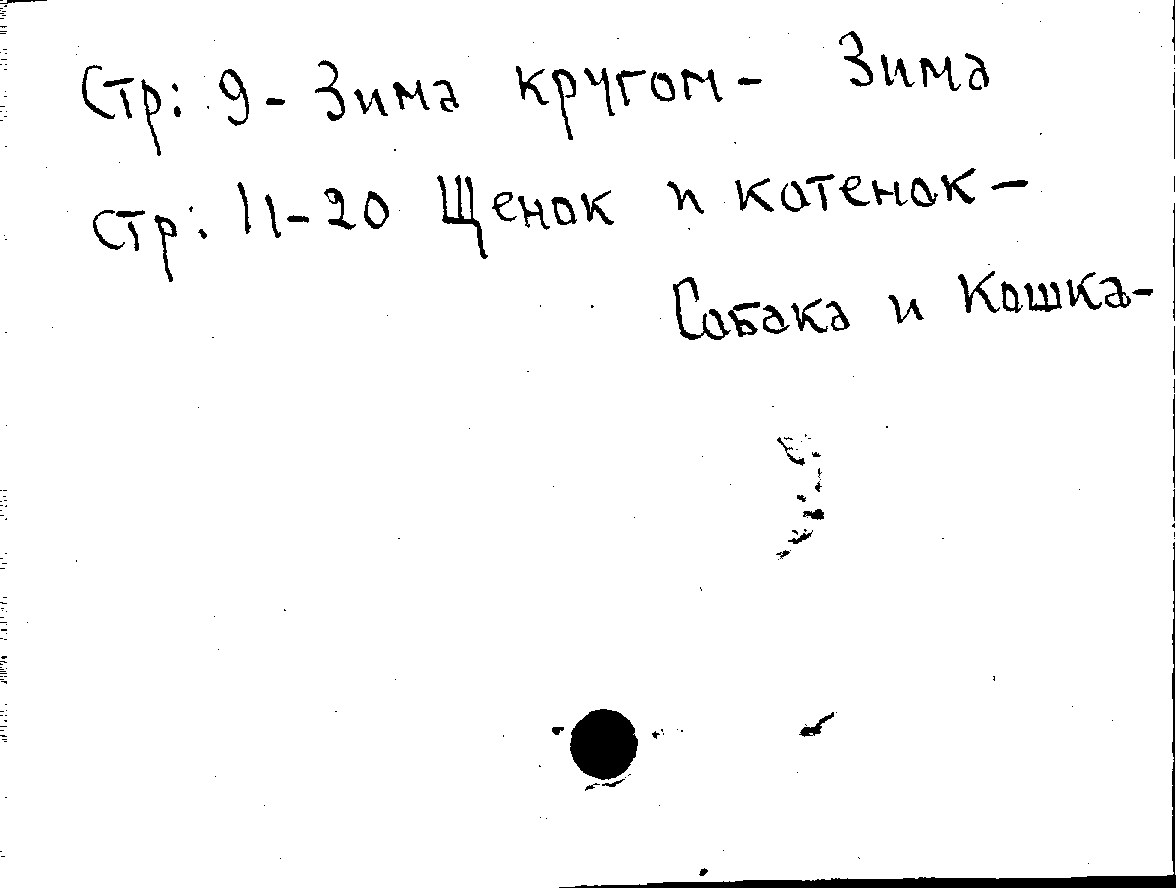 Стр: 9- Зима кругом- Зима
стр: 11-20 Щенок и котенок-
Собака и Кошка-